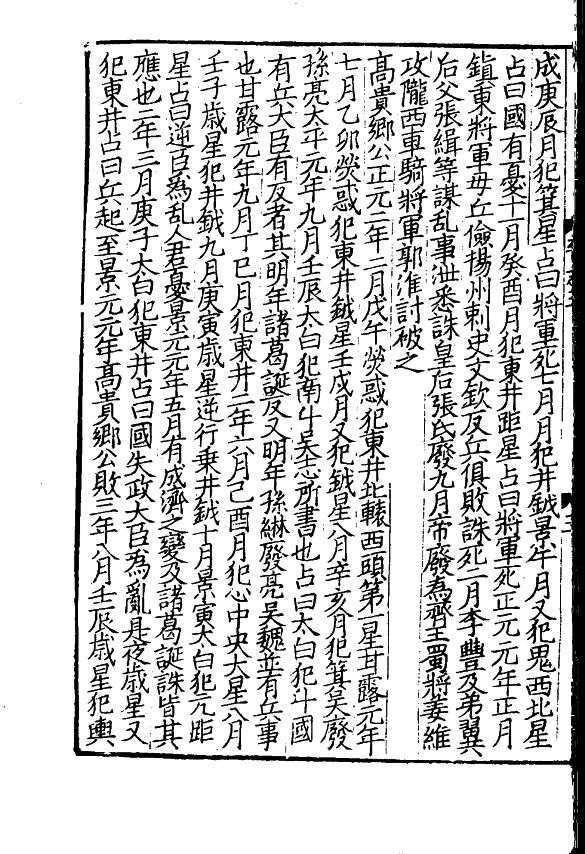 成庚辰月犯箕星占曰將軍死七月月犯井鉞景午月又犯鬼西北星
占曰國有憂十一月癸酉月犯東井距星占曰將軍死正元元年正月
鎮東將軍毋丘儉揚州刺史文欽反兵俱敗誅死二月李豐及弟翼
后父張緝等謀亂事泄悉誅皇后張氏廢九月帝廢為齊王蜀將姜維
攻隴西車騎將軍郭淮討破之
高貴鄉公正元二年二月戊午熒惑犯東井北轅西頭第一星甘露元年
七月乙卯熒惑犯東井鉞星壬戌月又犯鉞星八月辛亥月犯箕吳廢
孫亮太平元年九月壬辰太白犯南斗吳志所書也占曰太白犯斗國
有兵大臣有反者其明年諸葛誕反又明年孫綝廢亮吳魏並有兵事
也甘露元年九月丁巳月犯東井二年六月己酉月犯心中央大星八月
壬子歲星犯井鉞九月庚寅歲星逆行乗井鉞十月景寅太白犯亢距
星占曰逆臣為乱人君憂景元元年五月有成濟之變及諸葛誕誅皆其
應也二年三月庚子太白犯東井占曰國失政大臣為亂是夜歲星又
犯東井占曰兵起至景元元年高貴鄉公敗三年八月壬辰歲星犯輿